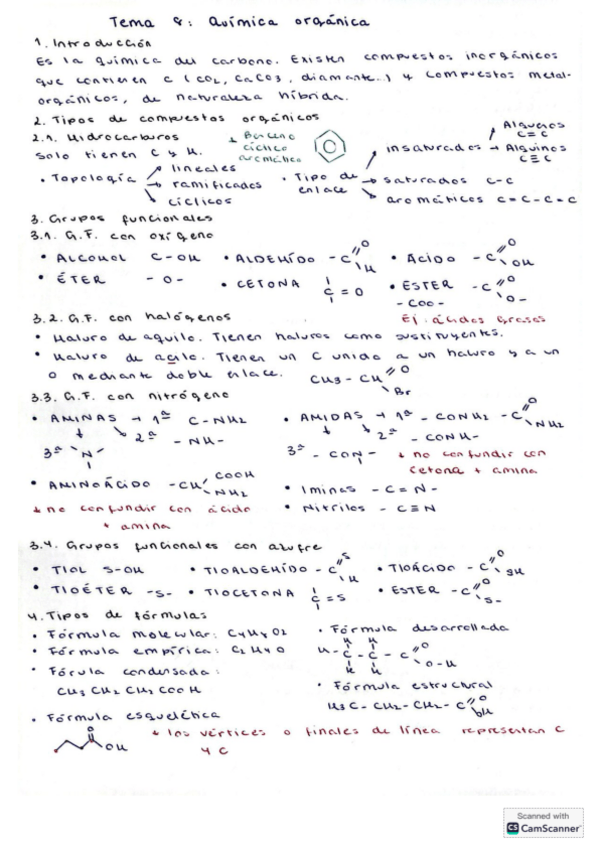 Tema 8: Química orgánica
1. Introducción
Es la química del carbono. Existen compuestos inorgánicos
que contienen C (CO2, CaCO3, diamante..) y compuestos metal-
orgánicos, de naturaleza híbrida.
2. Tipos de compuestos orgánicos
2.1. Hidrocarburos
Solo tienen C y H.
* Benceno
cíclico
aromático
• Topología
lineales
ramificados
cíclicos
• Tipo de enlace
insaturados
Alquenos
C=C
Alquinos
C≡C
saturados C-C
aromáticos C=C-C=C
3. Grupos funcionales
3.1. G.F. con oxígeno
• ALCOHOL C-OH • ALDEHÍDO -C=O H • ÁCIDO -C=O OH
• ÉTER -O- • CETONA C=O • ESTER -C=O O-
-COO-
Ej: ácidos grasos
3.2. G.F. con halógenos
• Haluro de aquilo. Tienen haluros como sustituyentes.
• Haluro de acilo. Tienen un C unido a un haluro y a un
O mediante doble enlace. CH3-CH=O Br
3.3. G.F. con nitrógeno
• AMINAS → 1ª C-NH2
2ª -NH-
3ª -N-
• AMIDAS → 1ª -CONH2 -C=O NH2
2ª -CONH-
3ª -CON-
* no confundir con
cetona + amina
• AMINOÁCIDO -CH COOH NH2
* no confundir con ácido
+ amina
• Iminas -C=N-
• Nitrilos -C≡N
3.4. Grupos funcionales con azufre
• TIOL S-OH • TIOALDEHÍDO -C=S H • TIOÁCIDO -C=O SH
• TIOÉTER -S- • TIOCETONA C=S • ESTER -C=O S-
4. Tipos de fórmulas
• Fórmula molecular: C4H4O2
• Fórmula empírica: C2H4O
• Fórula condensada:
CH3CH2CH2COOH
• Fórmula desarrollada
H H
H-C-C-C=O
H H O-H
• Fórmula estructural
H3C-CH2-CH2-C=O OH
• Fórmula esquelética
O
OH
* los vértices o finales de línea representan C
y C
Scanned with
CS CamScanner